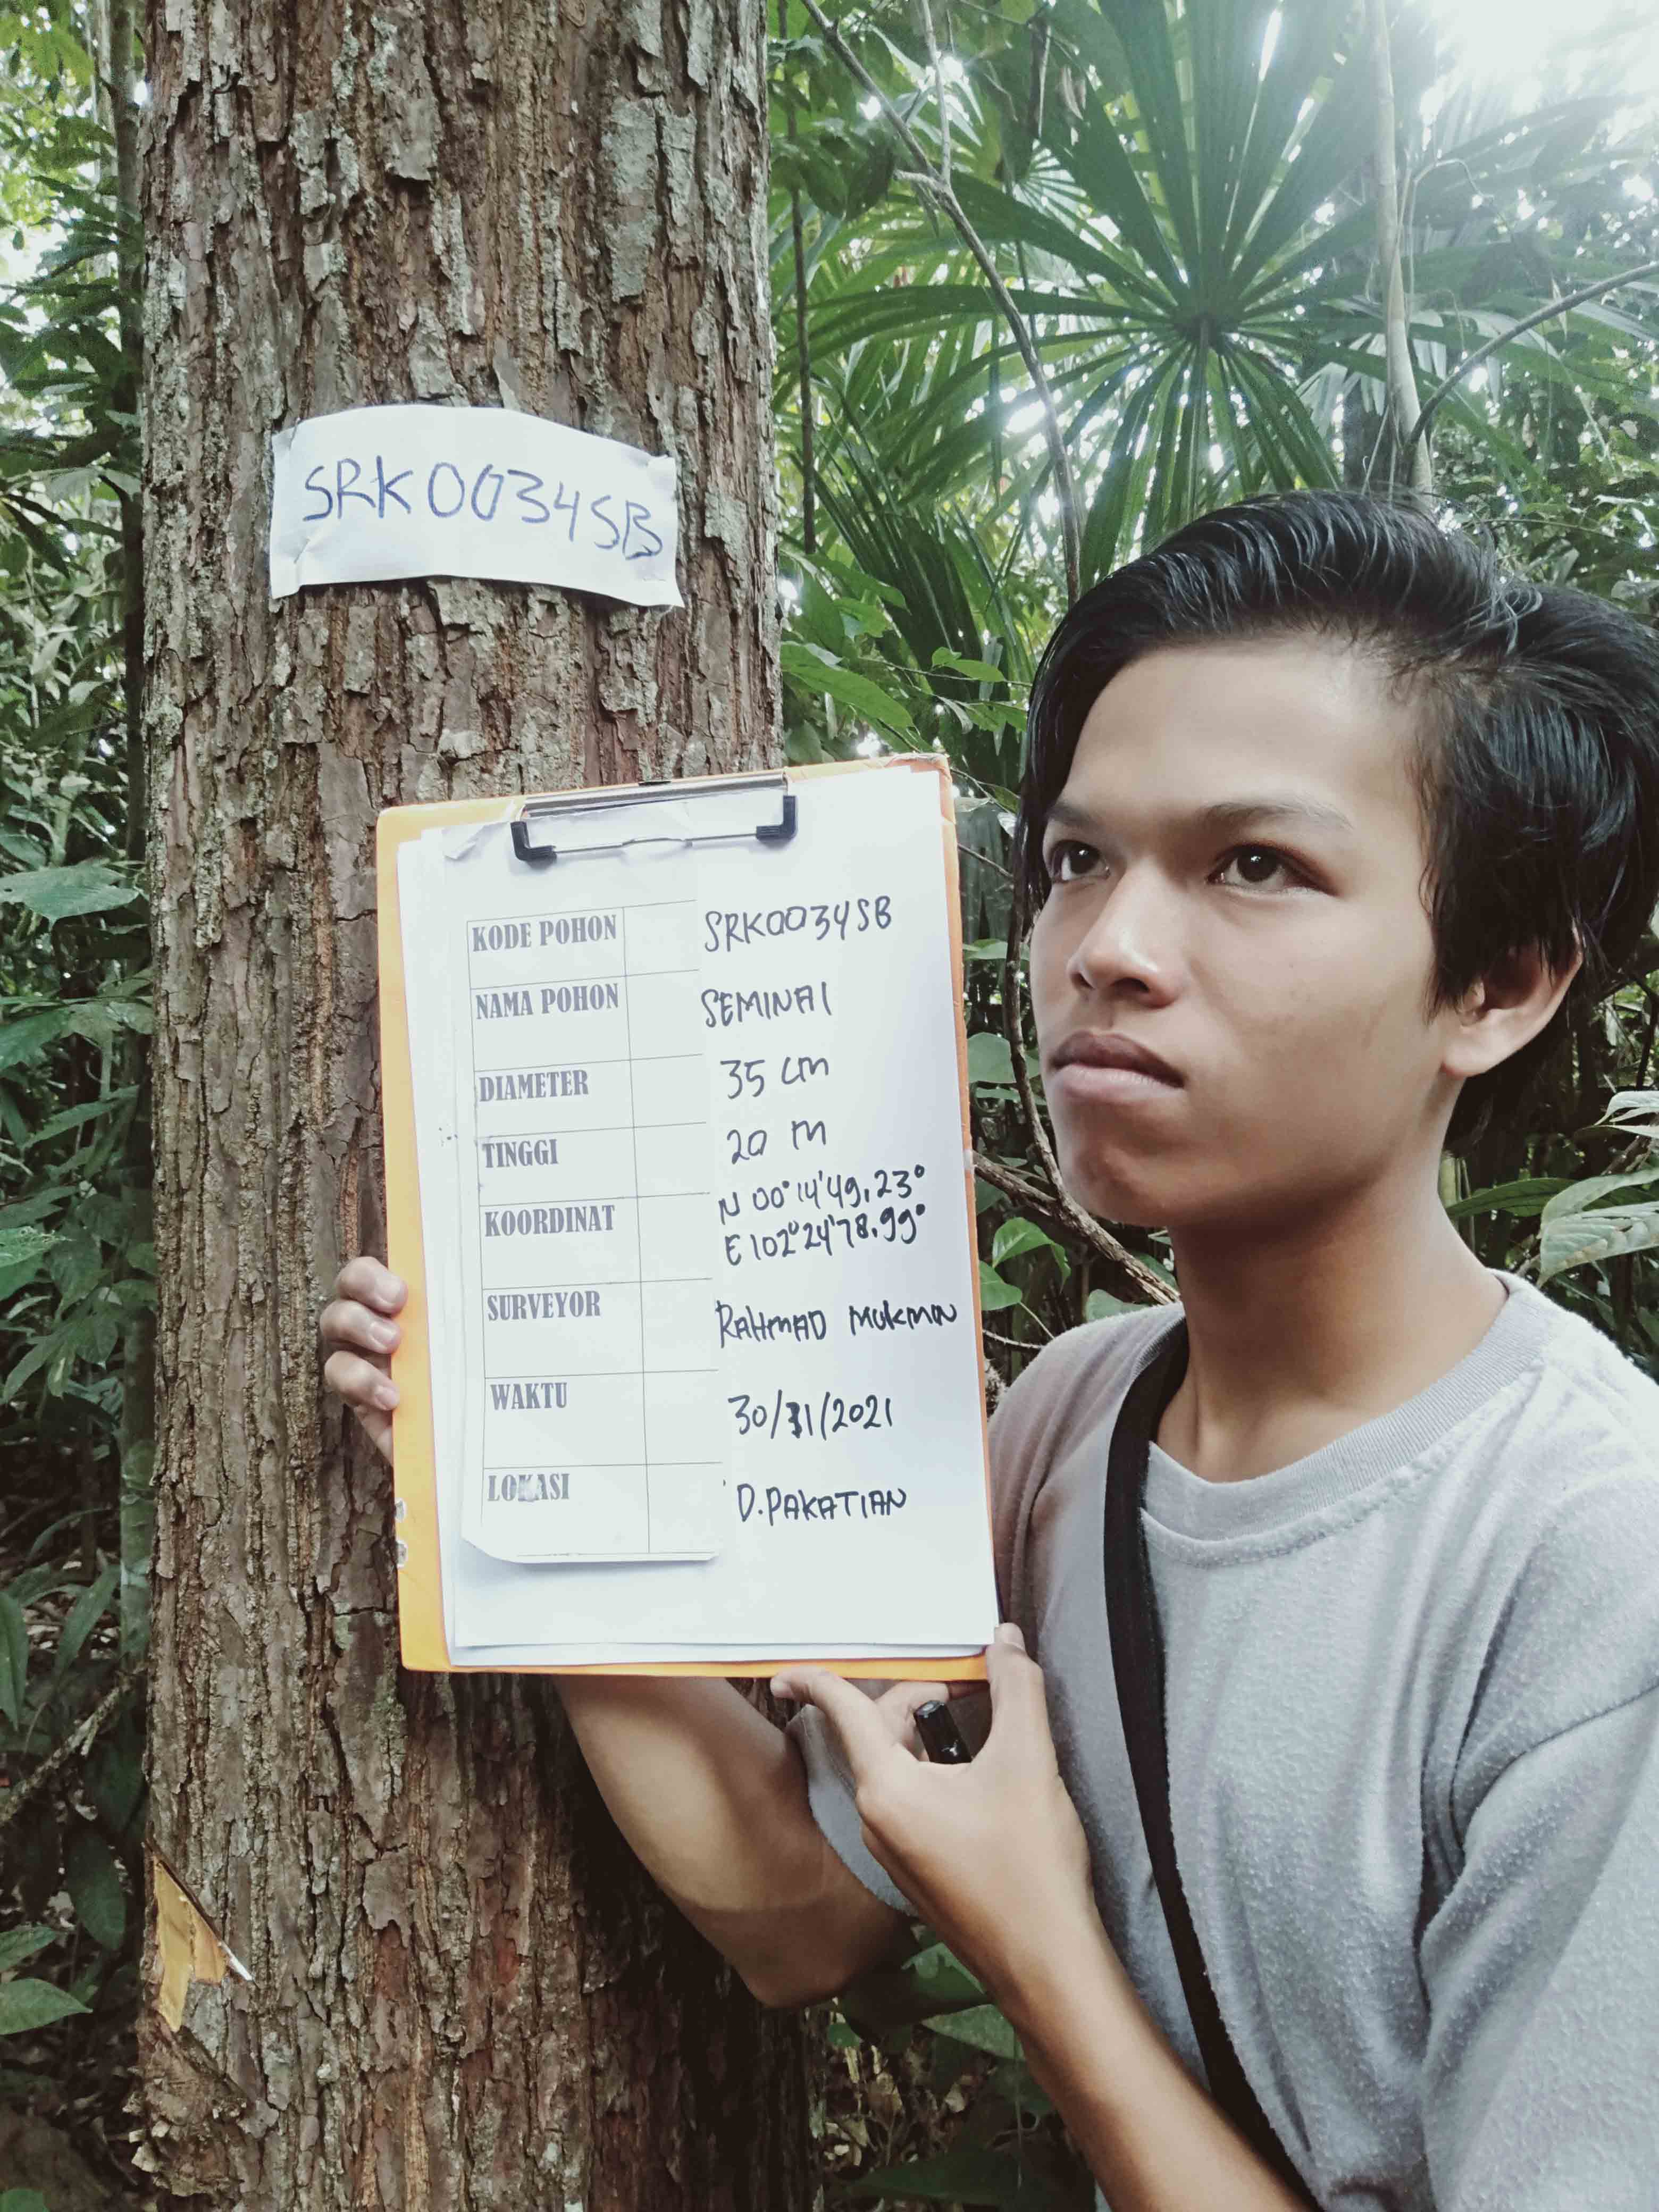 SRK0034SB
KODE POHON SRK0034SB
NAMA POHON SEMINAI
DIAMETER 35 cm
TINGGI 20 m
KOORDINAT N 00°14'49,23°
E 102°24'78.99°
SURVEYOR RAHMAD MUKMIN
WAKTU 30/11/2021
LOKASI D.PAKATIAN